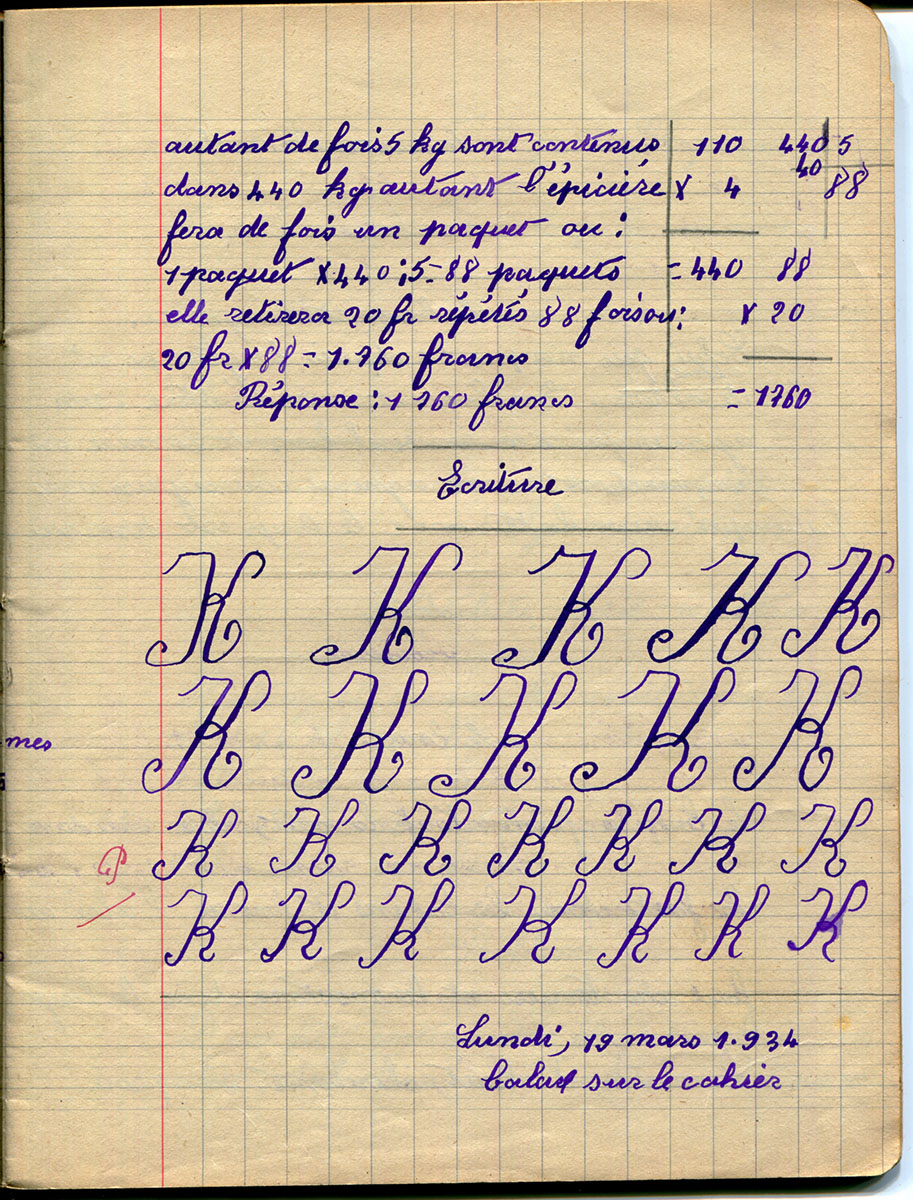 autant de fois 5 kg sont contenus
dans 440 kg autant l'épicière
fera de fois un paquet ou :
1 paquet x 440 : 5 = 88 paquets
elle retirera 20 fr répétés 88 fois ou :
20 fr x 88 = 1.760 francs
Réponse : 1760 francs
110
x 4
= 440
440 5
40 88
88
x 20
= 1760
Ecriture
K K K K K
K K K K K
mes
K K K K K K K
K K K K K K K
Lundi, 19 mars 1.934
sur le cahier